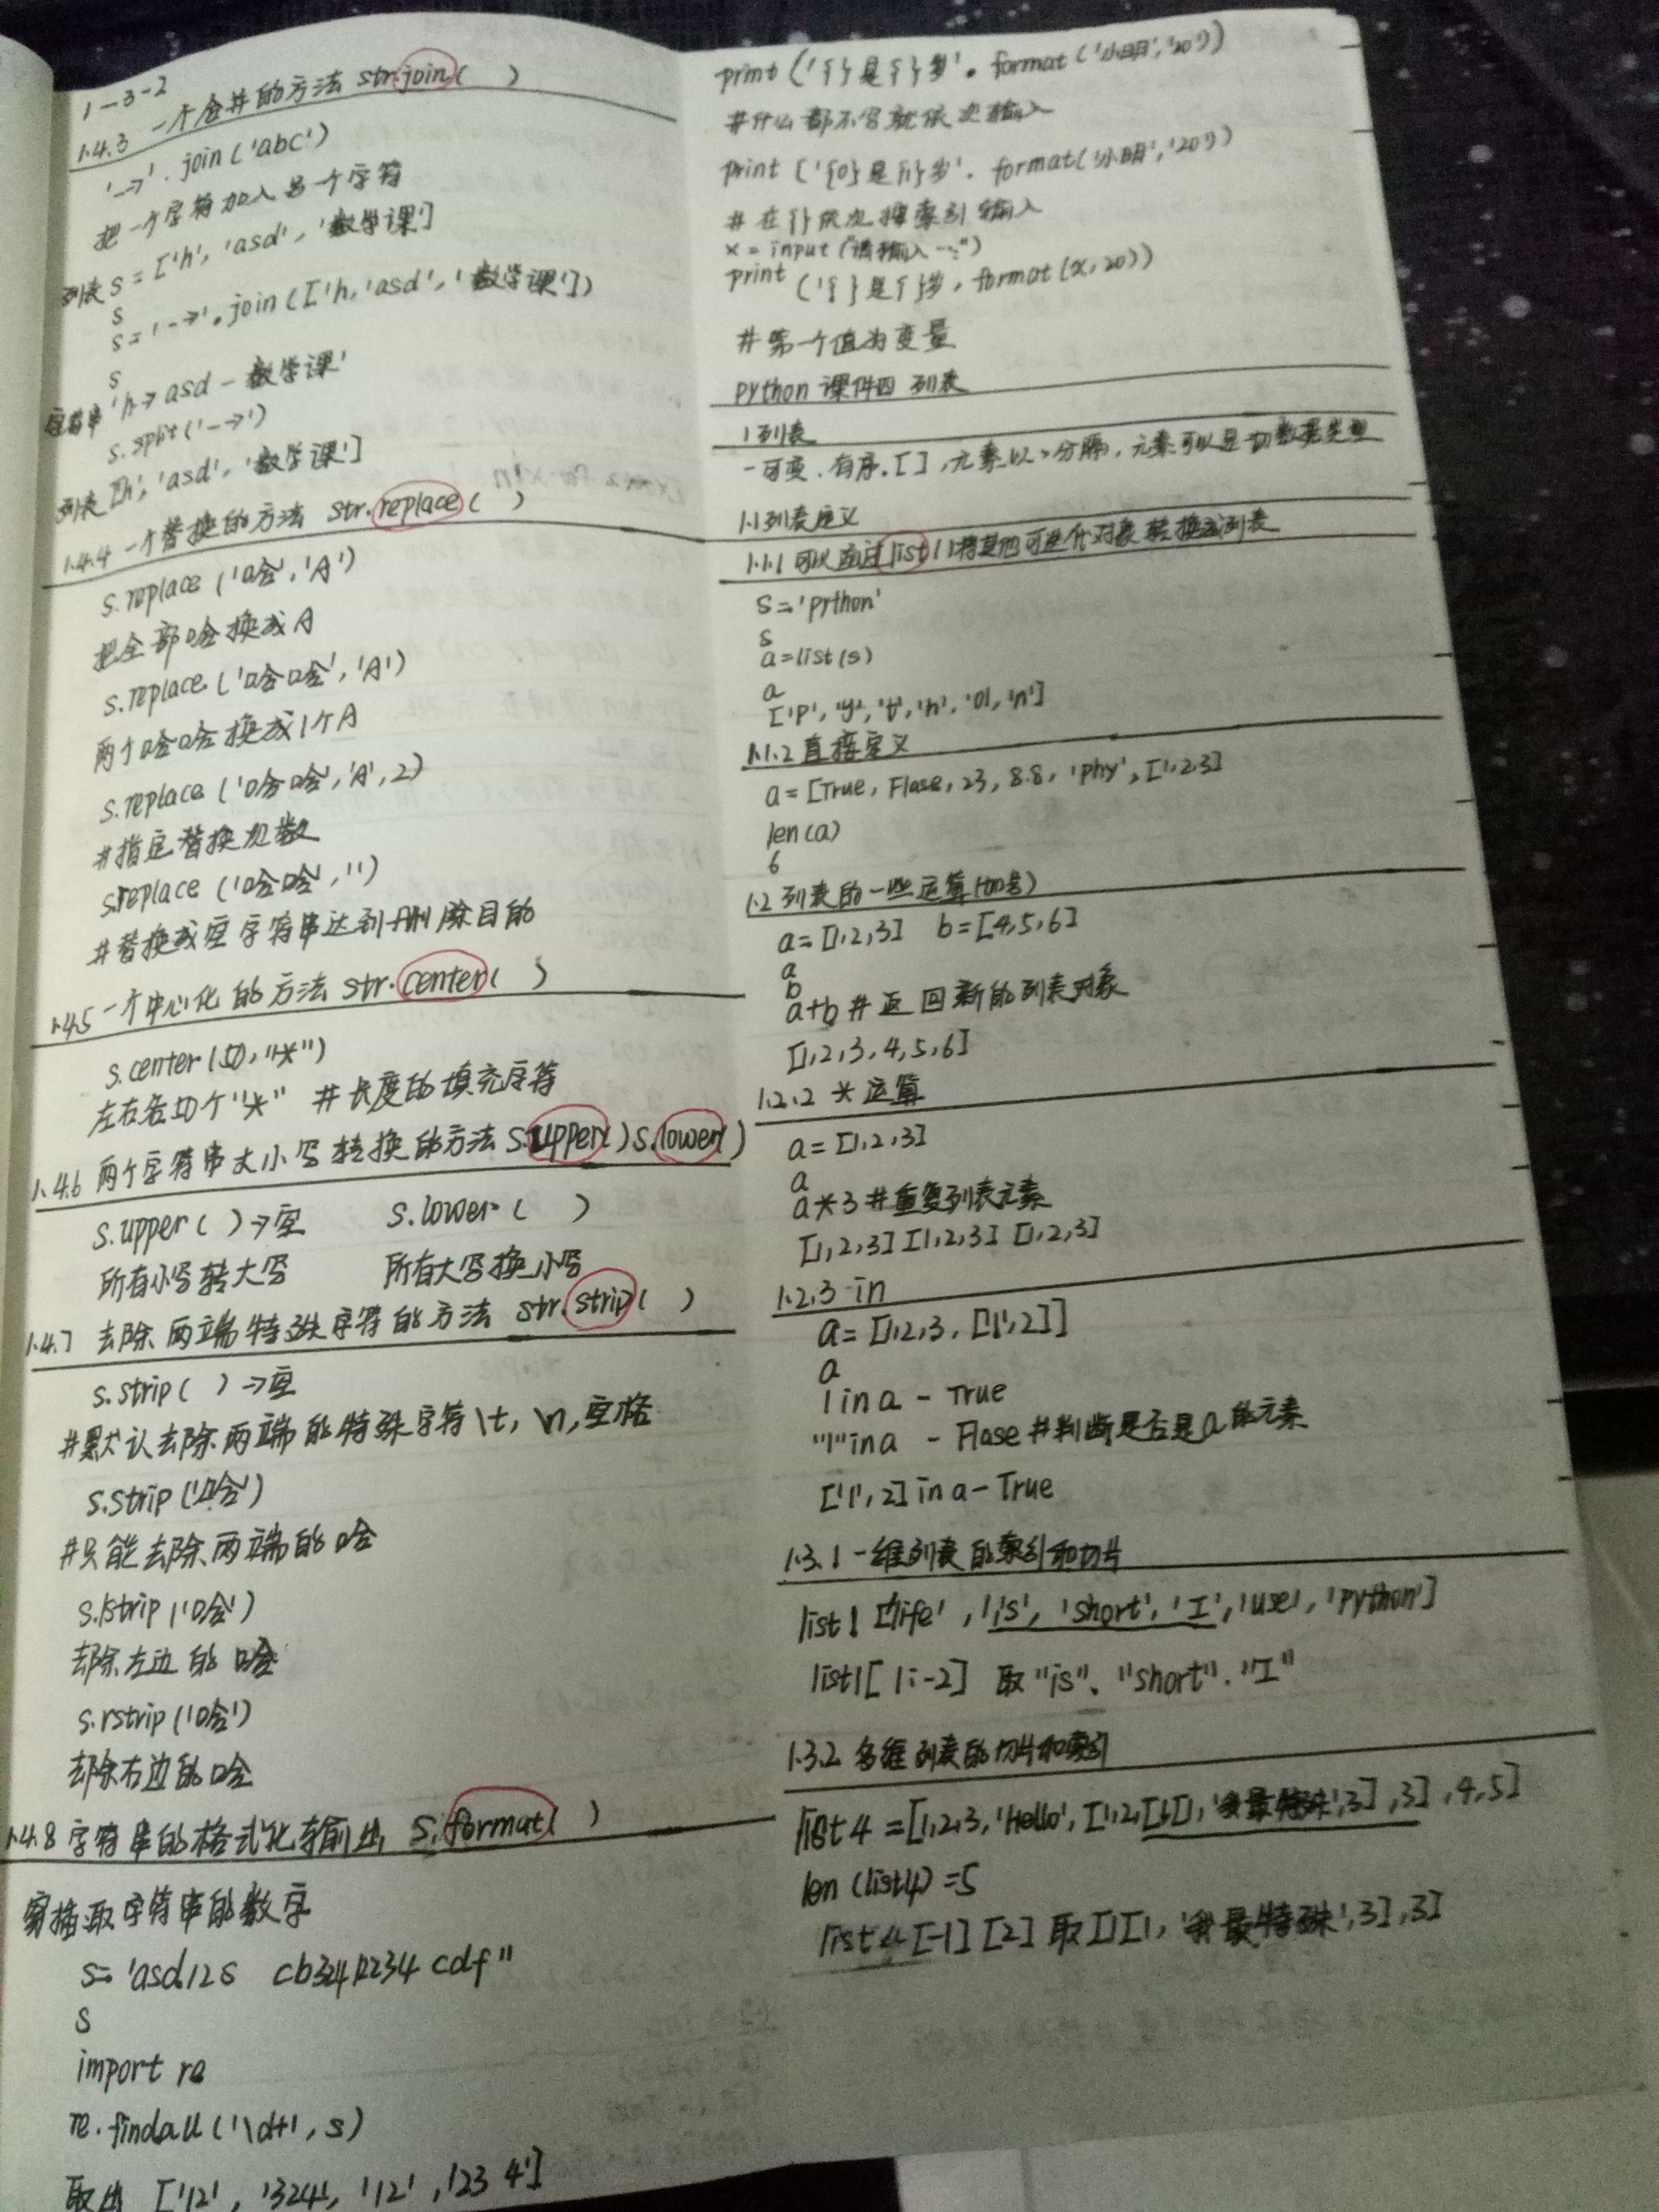 1-3-2
1.4.3 一个合并的方法 str.join( )
'->'.join('abc')
把一个字符加入另一个字符
列表 s = ['h', 'asd', '数学课']
s
s = '->'.join(['h, 'asd', '数学课'])
s
字符串 'h->asd-数学课'
s.split('->')
列表 ['h', 'asd', '数学课']
1.4.4 一个替换的方法 str.replace( )
s.replace('哈','A')
把全部哈换成A
s.replace('哈哈','A')
两个哈哈换成1个A
s.replace('哈哈','A',2)
#指定替换次数
s.replace('哈哈','')
#替换成空字符串达到删除目的
1.4.5 一个中心化的方法 str.center( )
s.center(50,"*")
左右各切个"*" #长度的填充字符
1.4.6 两个字符串大小写转换的方法 s.upper( ) s.lower( )
s.upper( )->空 s.lower( )
所有小写转大写 所有大写换小写
1.4.7 去除两端特殊字符的方法 str.strip( )
s.strip( )->空
#默认去除两端的特殊字符\t, \n,空格
s.strip('哈')
#只能去除两端的哈
s.lstrip('哈')
去除左边的哈
s.rstrip('哈')
去除右边的哈
1.4.8 字符串的格式化输出 s.format( )
取字符串的数字
s= 'asd12s cb32412234 cdf"
s
import re
re.findall('\d+', s)
取出 ['12', '324', '12', '23 4']
print('{}是{}岁'.format('小明','20'))
#什么都不写就依次输入
print('{0}是{1}岁'.format('小明','20'))
#在{}依次按索引输入
x = input("请输入...")
print('{}是{}岁, format(x,20))
#第一个值为变量
python 课件四 列表
1 列表
-可变.有序.[ ],元素以,分隔,元素可以是一切数据类型
1.1列表定义
1.1.1 可以通过list( )将其他可迭代对象转换成列表
s='python'
s
a=list(s)
a
['p','y','t','h','o','n']
1.1.2 直接定义
a=[True, Flase, 23, 8.8, 'phy', [1,2,3]
len(a)
6
1.2 列表的一些运算
a=[1,2,3] b=[4,5,6]
a
b
a+b #返回新的列表对象
[1,2,3,4,5,6]
1.2.2 *运算
a=[1,2,3]
a
a*3 #重复列表元素
[1,2,3][1,2,3][1,2,3]
1.2.3 in
a=[1,2,3,['1',2]]
a
1 in a - True
"1" in a - Flase #判断是否是a的元素
['1',2] in a-True
1.3.1 一维列表的索引和切片
list1 ['life', 'is', 'short', 'I', 'use', 'python']
list1[1:-2] 取"is"、"short"."I"
1.3.2 多维列表的切片和索引
list4=[1,2,3,'Hello',[1,2,[1,[1,'我最特殊',3],3],4,5]
len(list4)=5
list4[-1][2] 取[1[1,'我最特殊',3],3]